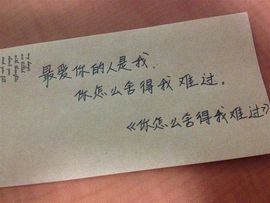 最爱你的人是我,
你怎么舍得我难过。
《你怎么舍得我难过》